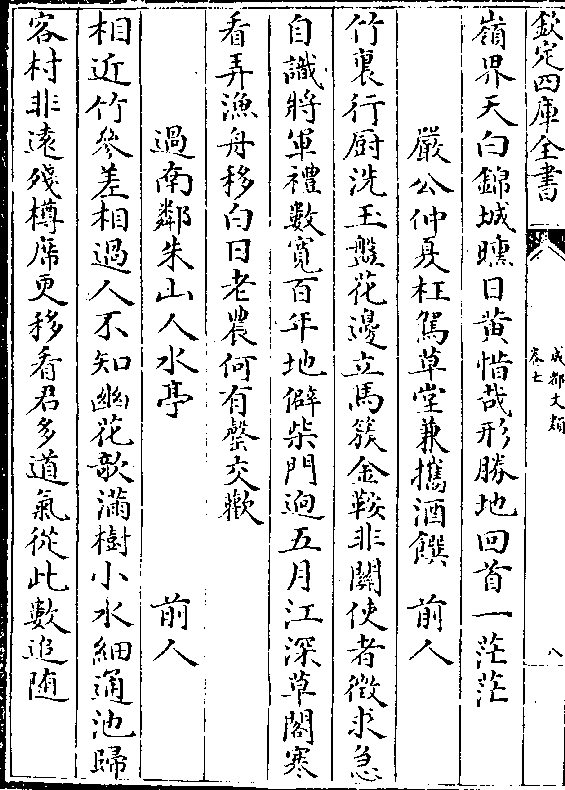 欽定四庫全書
成都文類
卷七
八
嶺界天白錦城曛日黄惜哉形勝地回首一茫茫
嚴公仲夏枉駕草堂兼攜酒饌 前人
竹裏行厨洗玉盤花邊立馬簇金鞍非關使者徵求急
自識將軍禮數寛百年地僻柴門迥五月江深草閣寒
看弄漁舟移白日老農何有罄交歡
過南鄰朱山人水亭 前人
相近竹參差相過人不知幽花欹滿樹小水細通池歸
客村非逺殘樽席更移看君多道氣從此數追随